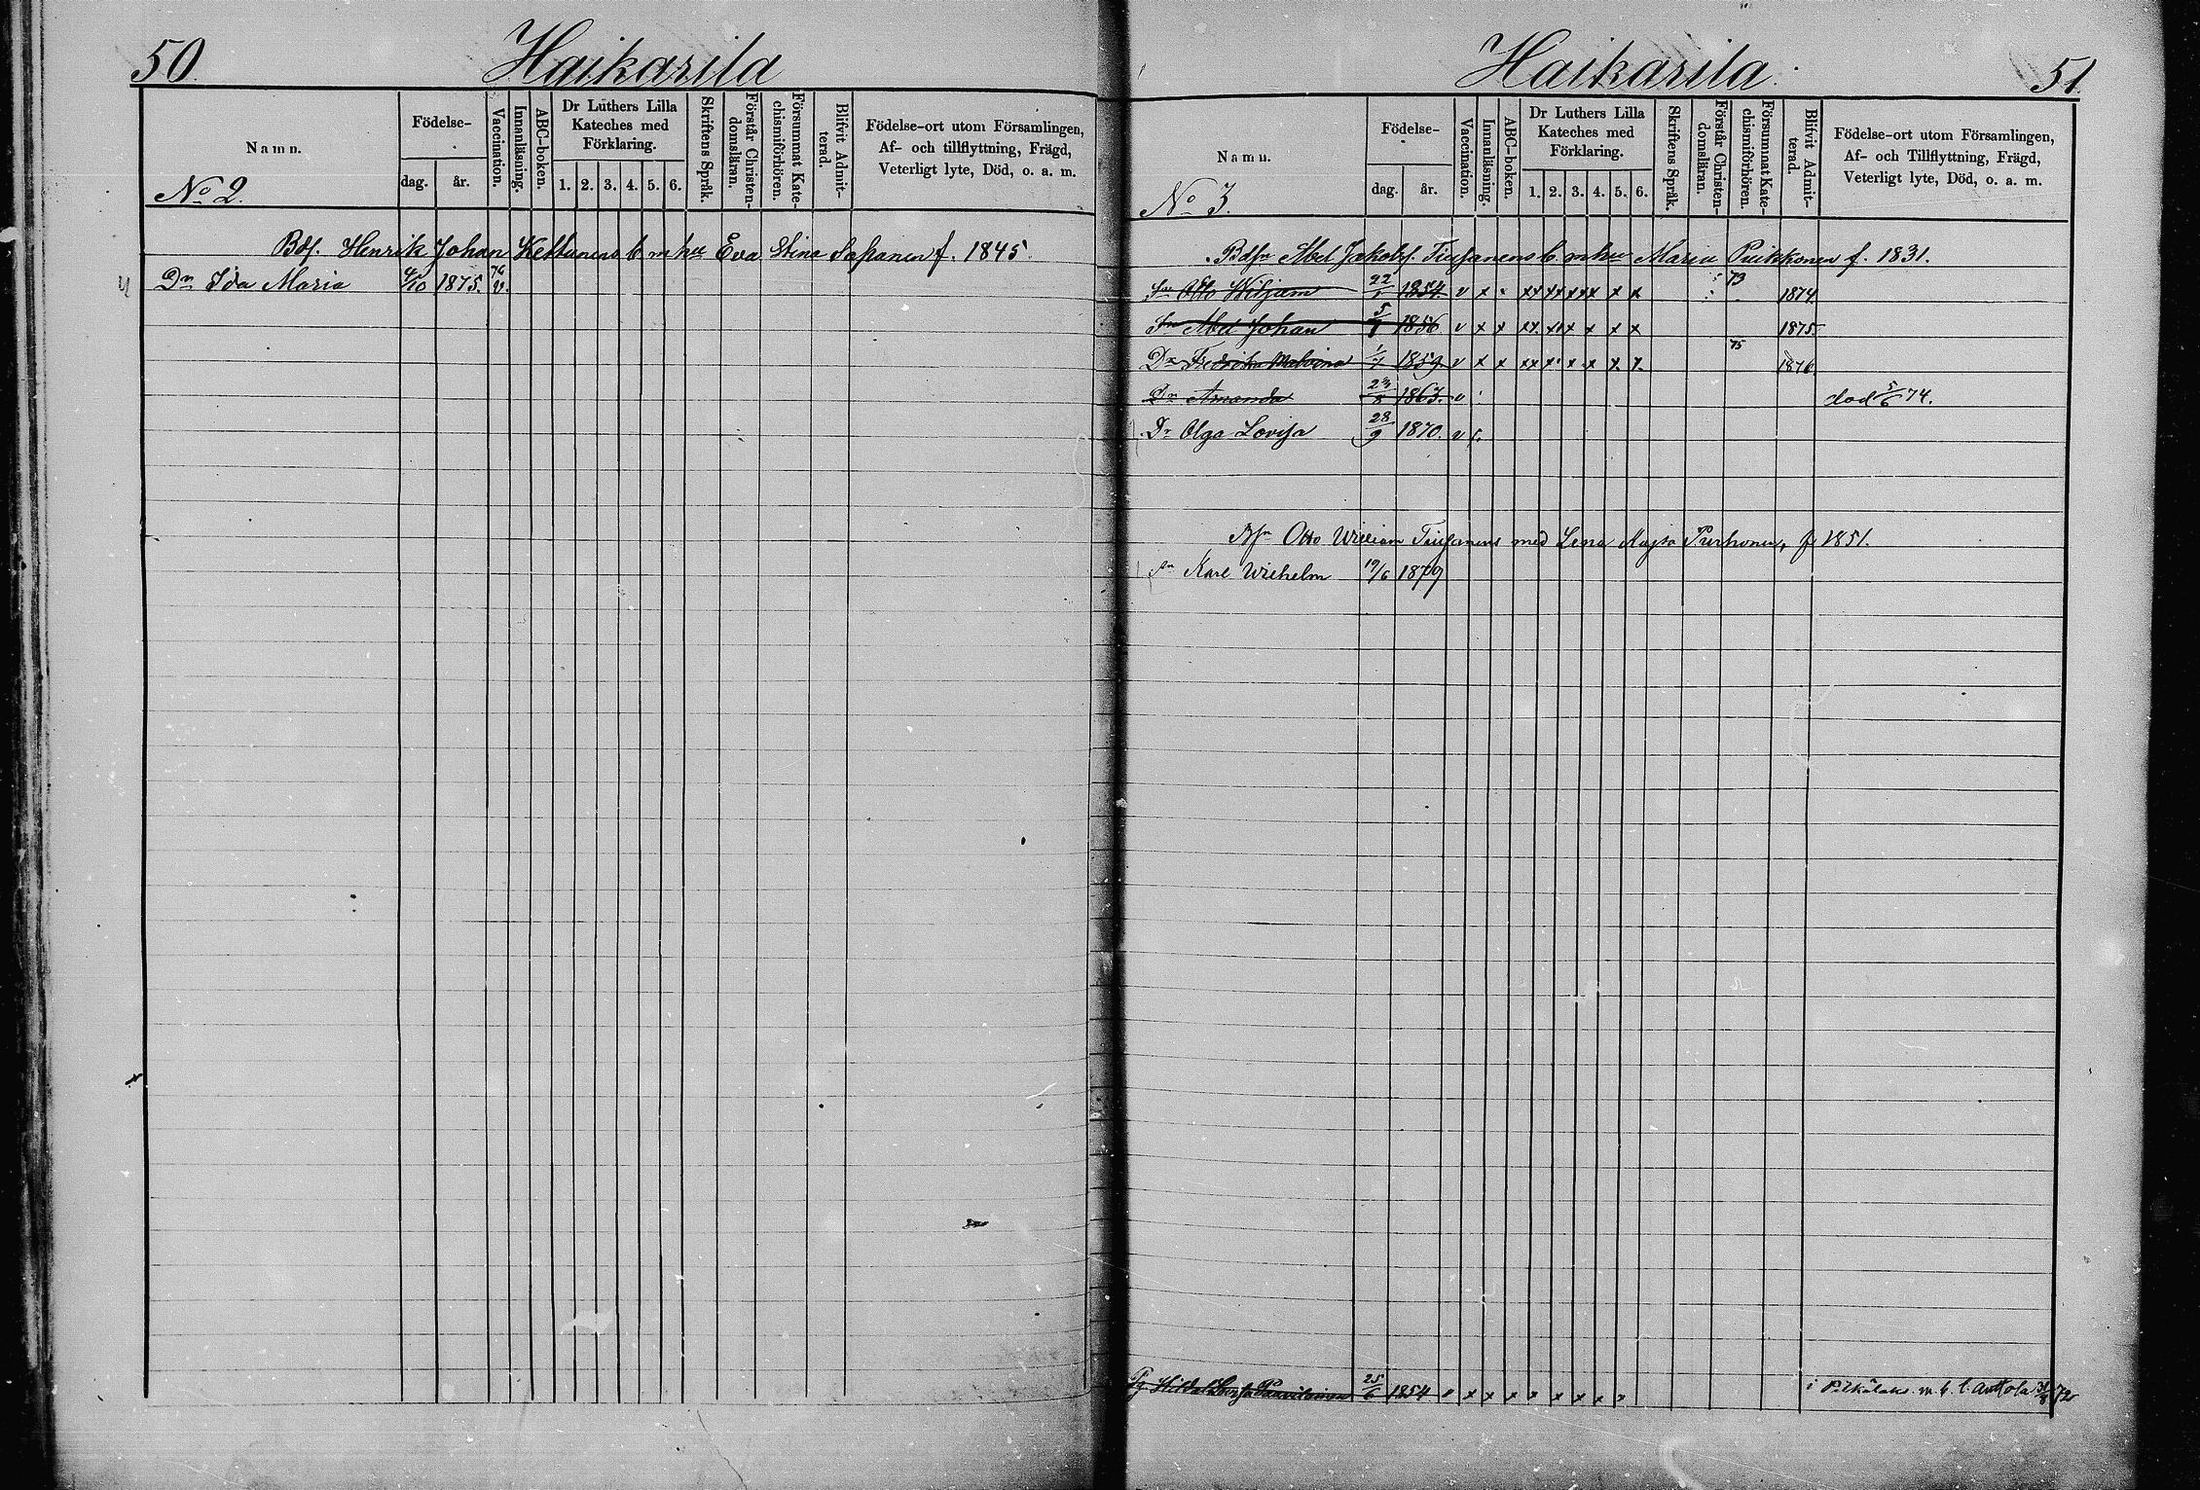 50. Haikarila
Namn. Födelse- dag. år. Vaccination. Innanläsning. ABC-boken. Dr Luthers Lilla Kateches med Förklaring. 1. 2. 3. 4. 5. 6. Skriftens Språk. Förstår Christendomsläran. Försummat Katechismiförhören. Blifvit Admitterad. Födelse-ort utom Församlingen, Af- och tillflyttning, Frägd, Veterligt lyte, Död, o. a. m.
No 2.
Bdf. Henrik Johan Kettunens b. m hu Eva Stina f. 1845.
Dr Ida Maria 1875. 76 v.
Haikarila. 51.
Namn. Födelse- dag. år. Vaccination. Innanläsning. ABC-boken. Dr Luthers Lilla Kateches med Förklaring. 1. 2. 3. 4. 5. 6. Skriftens Språk. Förstår Christendomsläran. Försummat Katechismiförhören. Blifvit Admitterad. Födelse-ort utom Församlingen, Af- och Tillflyttning, Frägd, Veterligt lyte, Död, o. a. m.
No 3.
Abel Jakobs. Tiusanens b. m hu Maria Puikkonen f. 1831.
Sn Otto Wiljam 22/1 1854. v x xx xx xx x x x 73 1874.
Sn Abel Johan 1856 v x x xx. x x x x x 1875.
Dr Fredrika 1859. v x x xx x x x x x. 75 1876
Dr Amanda 1863. v död 5/6 74.
Dr Olga Lovisa 28/9 1870. v
Otto William Tiusanens med Lena Majsa Purhonen, f 1851.
Sn Karl Wilhelm 19/6 1879
Hilda 25/6 1854 v x x x x x x x x i m. b. t. Anttola 72